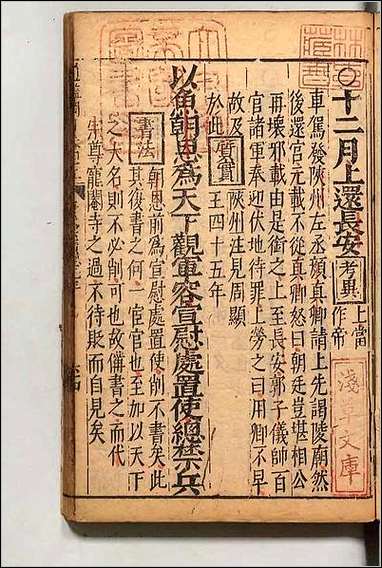 〇十二月上還長安
考異
上當
作帝
車駕發陝州左丞顏真卿請上先謁陵廟然
後還宮元載不從真卿怒曰朝廷豈堪相公
再壞邪載由是銜之上至長安郭子儀帥百
官諸軍奉迎伏地待罪上勞之曰用卿不早
故及
於此
質實
陝州注見周顯
王四十五年
以魚朝恩爲天下觀軍容宣慰處置使總禁兵
書法
朝恩前為宣慰處置使削不書矣此
其復書之何一宦官也至加以天下
之大名則不必削可也故備書之而代
宗尊寵閹寺之過不待貶而自見矣
淺草文庫